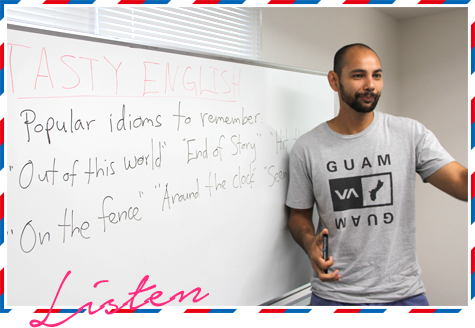 TASTY ENGLISH
Popular idioms to remember
"Out of this world" "End of Story"
"On the fence" "Around the clock"
GUAM
VA
GUAM
Listen